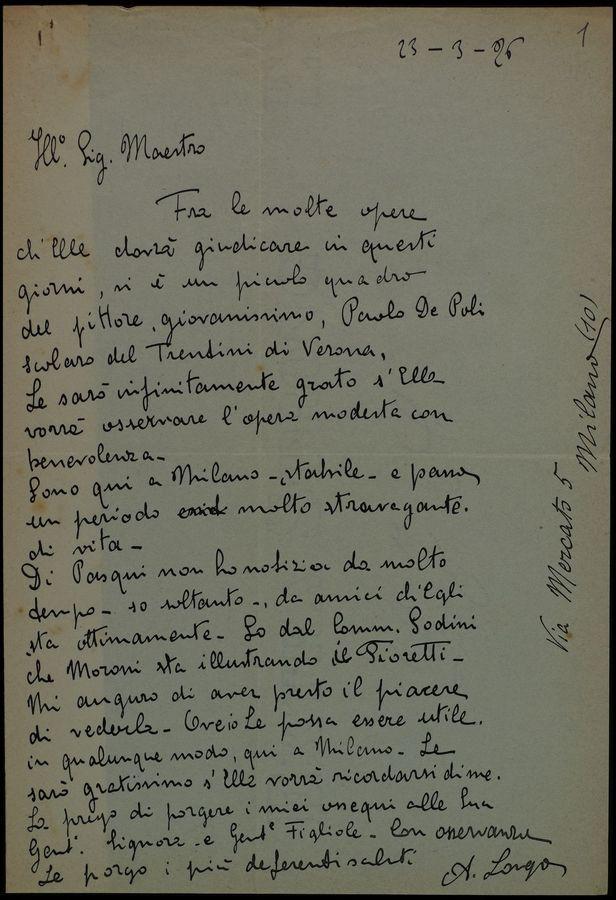 1
23 - 3 - 26
Ill°. Sig. Maestro
Fra le molte opere
ch'Elle dovrà giudicare in questi
giorni, vi è un piccolo quadro
del pittore, giovanissimo, Paolo De Poli
scolaro del Trentini di Verona.
Le sarò infinitamente grato s'Ella
vorrà osservare l'opera modesta con
benevolenza -
Sono qui a Milano - stabile - e passo
un periodo molto stravagante.
di vita -
Di Pasqui non ho notizie da molto
tempo - so soltanto -, da amici ch'Egli
sta ottimamente - So dal Comm. Godini
che Moroni sta illustrando i Fioretti -
Mi auguro di aver presto il piacere
di vederla - Ov'io Le possa essere utile.
in qualunque modo, qui a Milano - Le
sarò gratissimo s'Ella vorrà ricordarsi di me.
La prego di porgere i miei ossequi alle Sua
Gent°. Signora - e Gent° Figliole - Con osservanza
Le porgo i più deferenti saluti
A. Longo
Via Mercato 5 Milano (10)